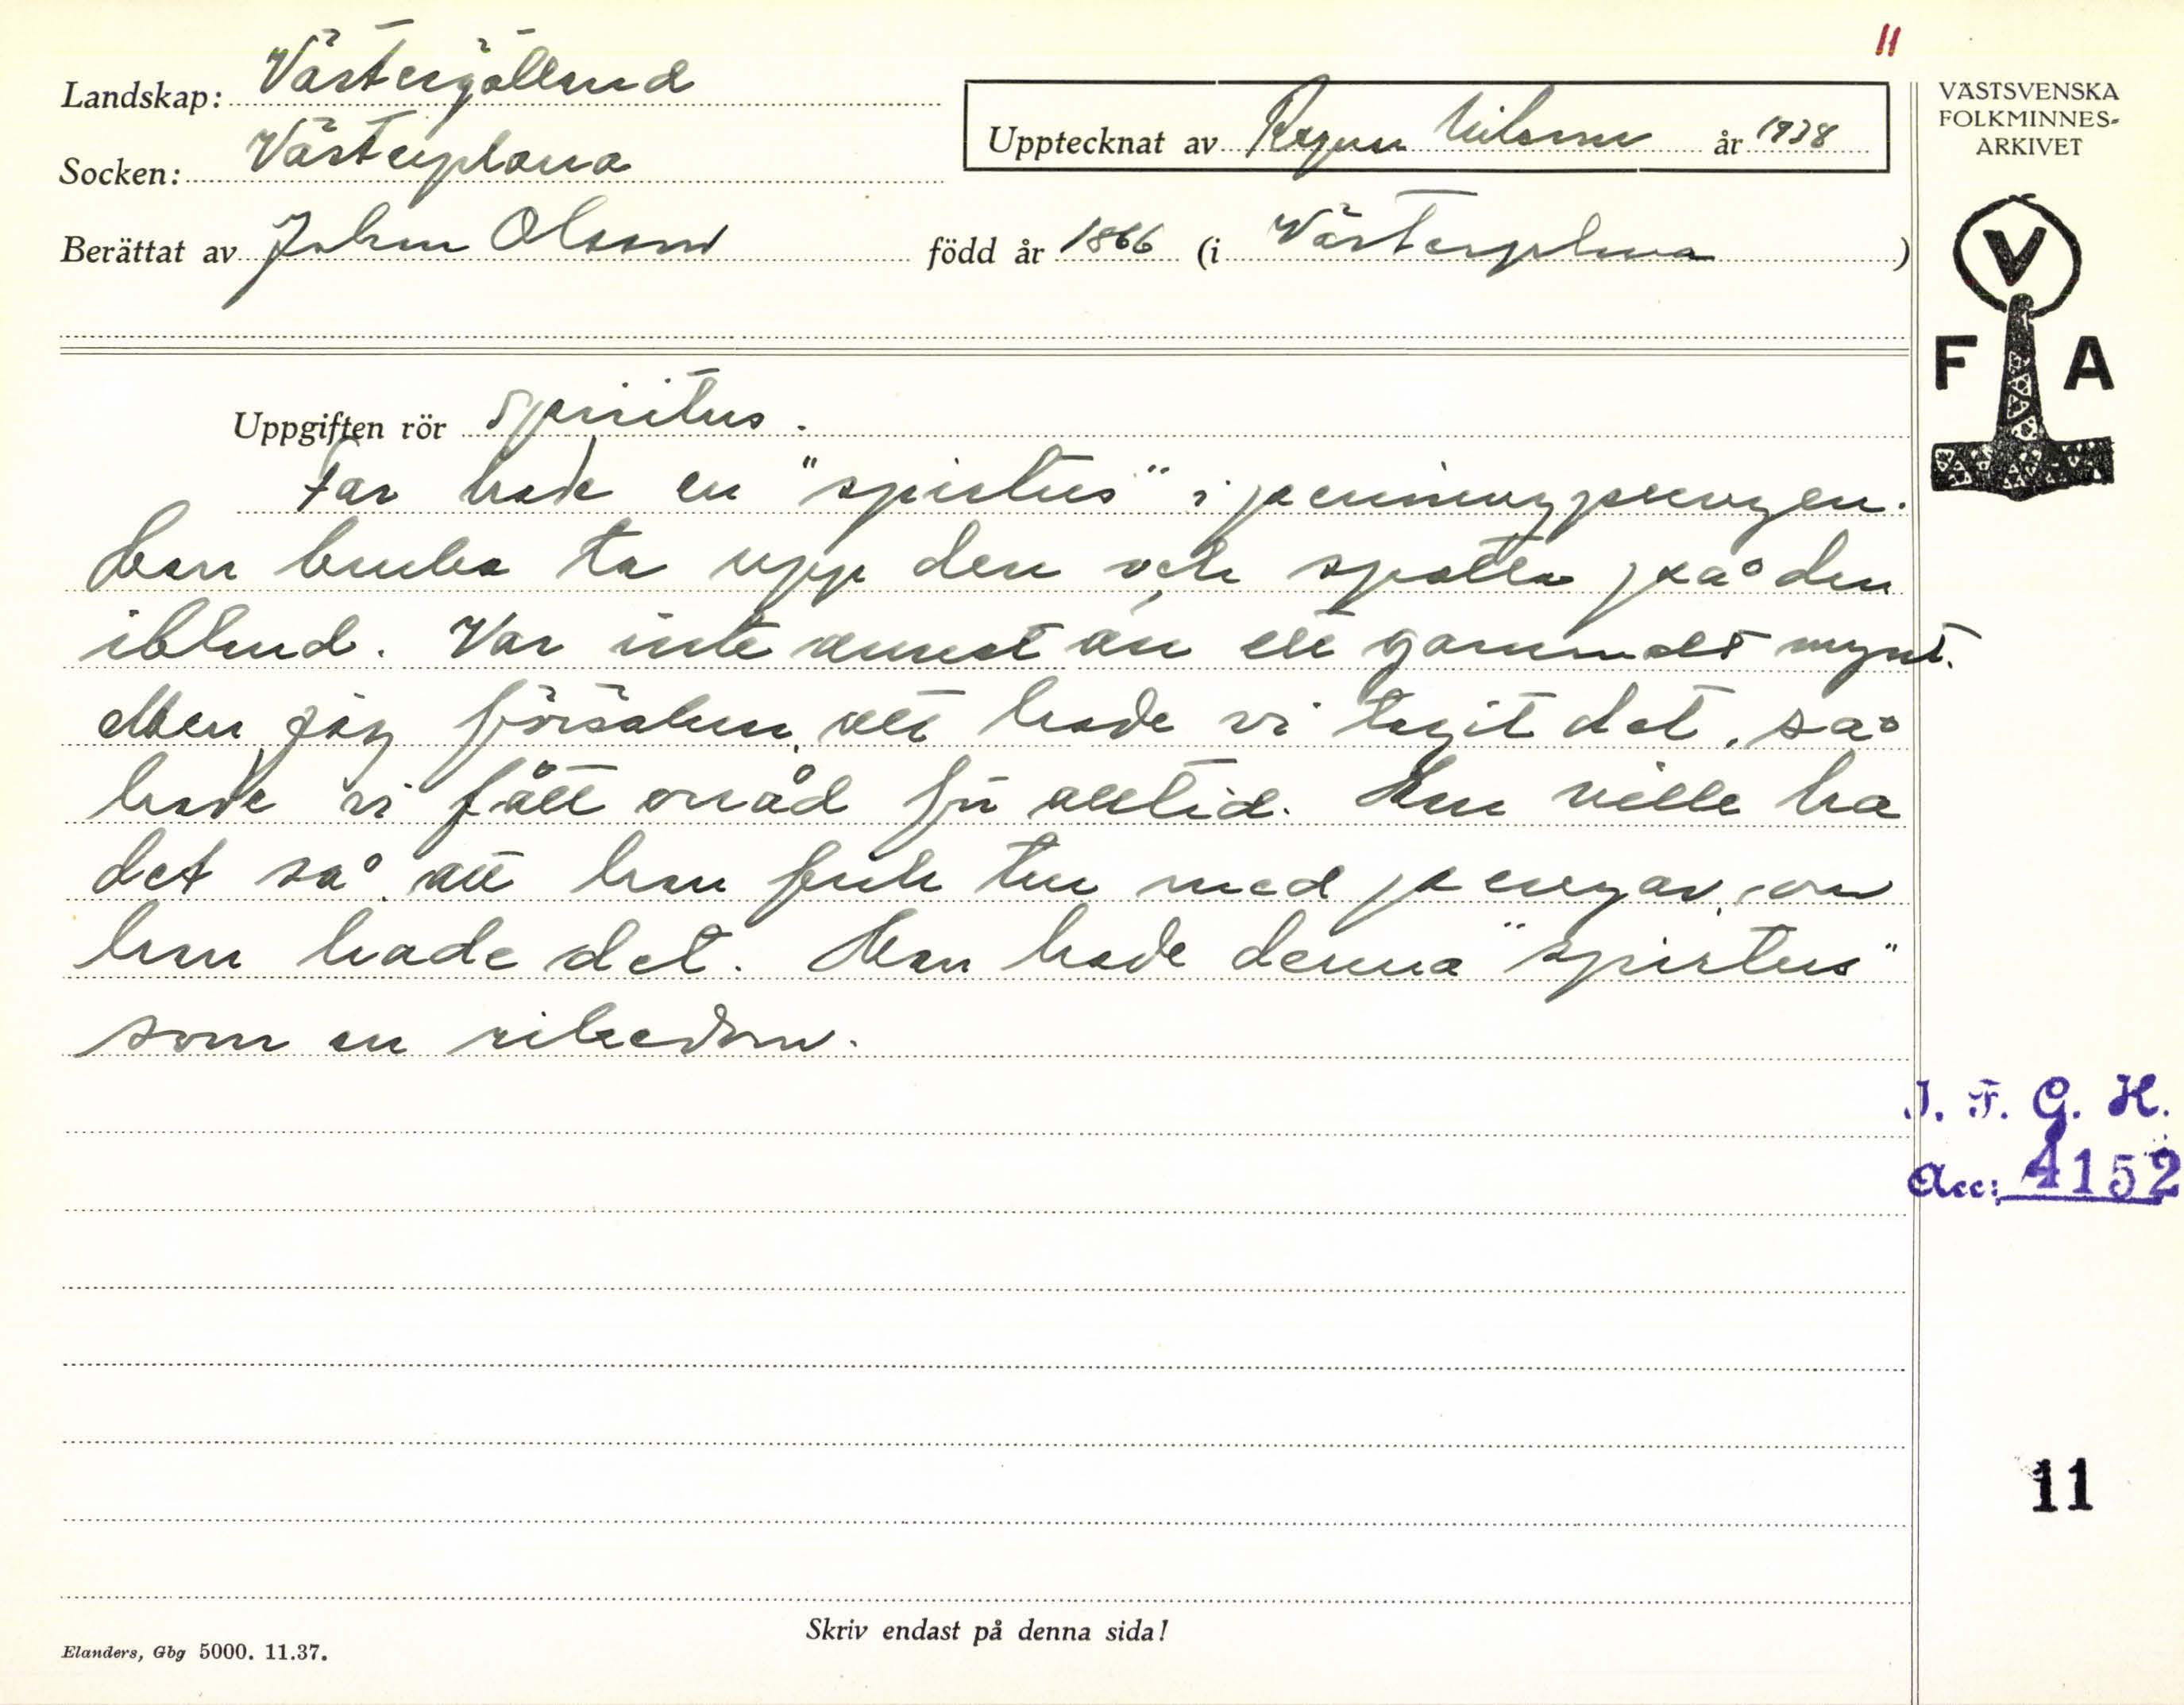 11
Landskap: Västergötland
Socken: Västerplana
Upptecknat av Ragnar Nilsson år 1938
Berättat av Johan Olsson född år 1866 (i Västerplana)
VÄSTSVENSKA
FOLKMINNES-
ARKIVET
V
F A
Uppgiften rör Spiritus.
Far hade en "spirtus" i penningpungen.
Han bruka ta upp den och spotta på den
ibland. Var inte annat än ett gammalt mynt.
Men jag försäkrar, att hade vi tagit det, så
hade vi fått onåd för alltid. Han ville ha
det så, att han fick tur med pengar, om
han hade det. Han hade denna "spirtus"
som en rikedom.
I. F. G. H.
Acc: 4152
11
Skriv endast på denna sida!
Elanders, Gbg 5000. 11.37.